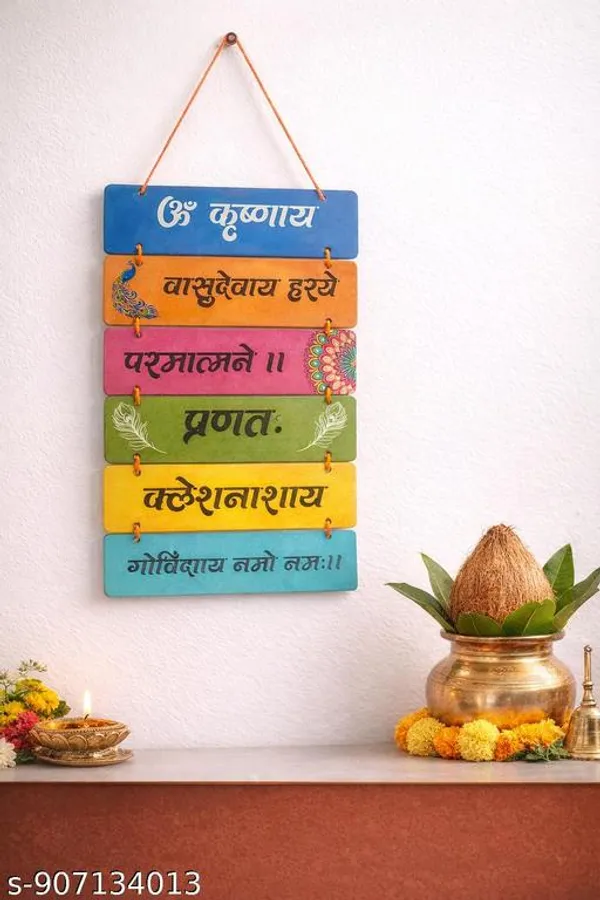 ॐ कृष्णाय
वासुदेवाय हरये
परमात्मने ॥
प्रणतः
क्लेशनाशाय
गोविंदाय नमो नमः॥
s-907134013